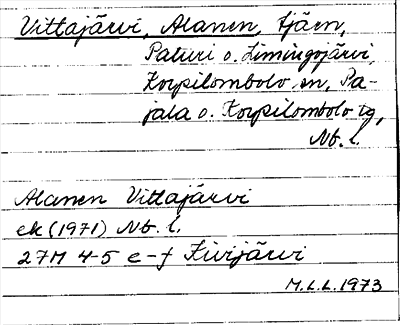 Vittajärvi, Alanen, tjärn,
Paturi o. Limingojärvi,
Korpilombolo sn, Pa-
jala o. Korpilombolo tg,
Nb. l.
Alanen Vittajärvi
ek (1971) Nb. l.
27M 4-5 e-f Kivijärvi
M.L.L. 1973